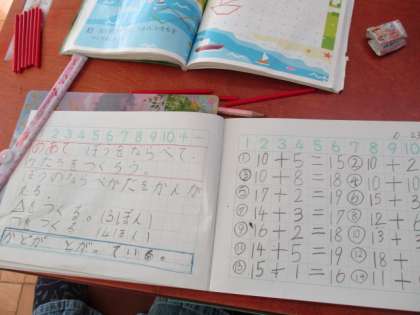 1 2 3 4 5 6 7 8 9 10 キ ー
めあて ぼうをならべて、
かたちをつくろう。
ぼうのならべかたをかんが
える
△をつくる。(3ぽん)
つくる。(4ほん)
かどが とがっている。
1 2 3 4 5 6 7 8 9 10
① 10+5=15 ② 10+
③ 10+8=18 ④ 10+
⑤ 17+2=19 ⑥ 15+
⑦ 14+3=17 ⑧ 12+
⑨ 16+2=18 ⑩ 13+
⑪ 14+5=19 ⑫ 15+
⑬ 15+1=16 ⑭ 11+